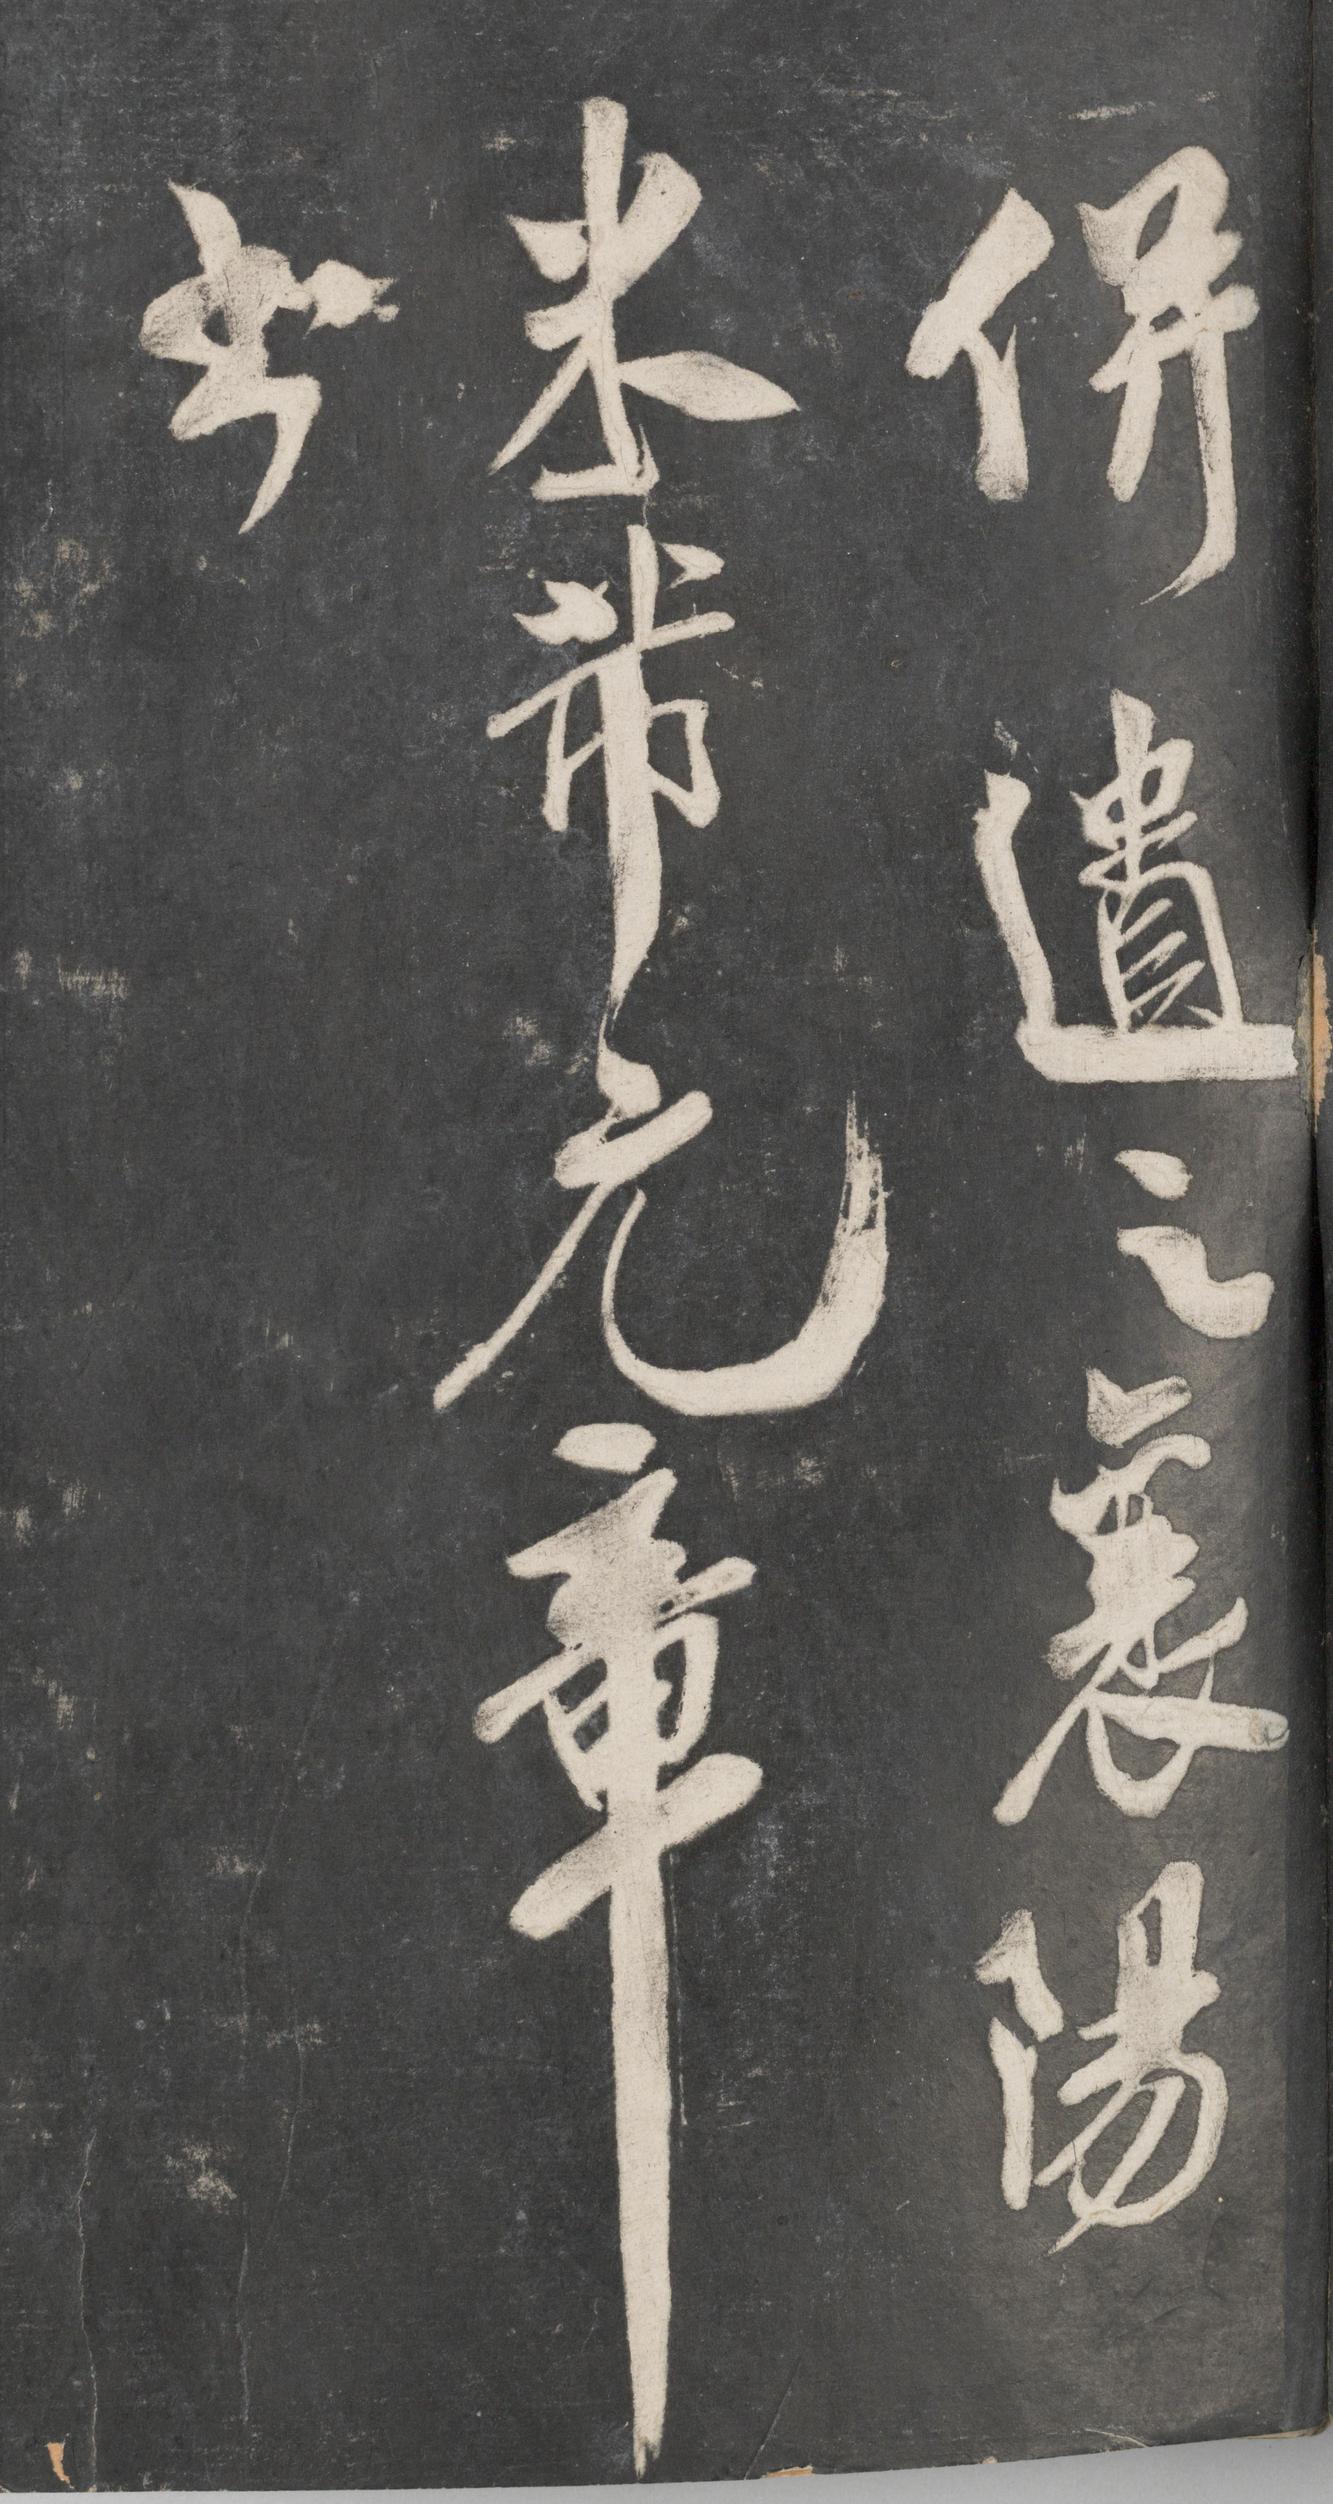 併遺之襄陽
米芾元章
书